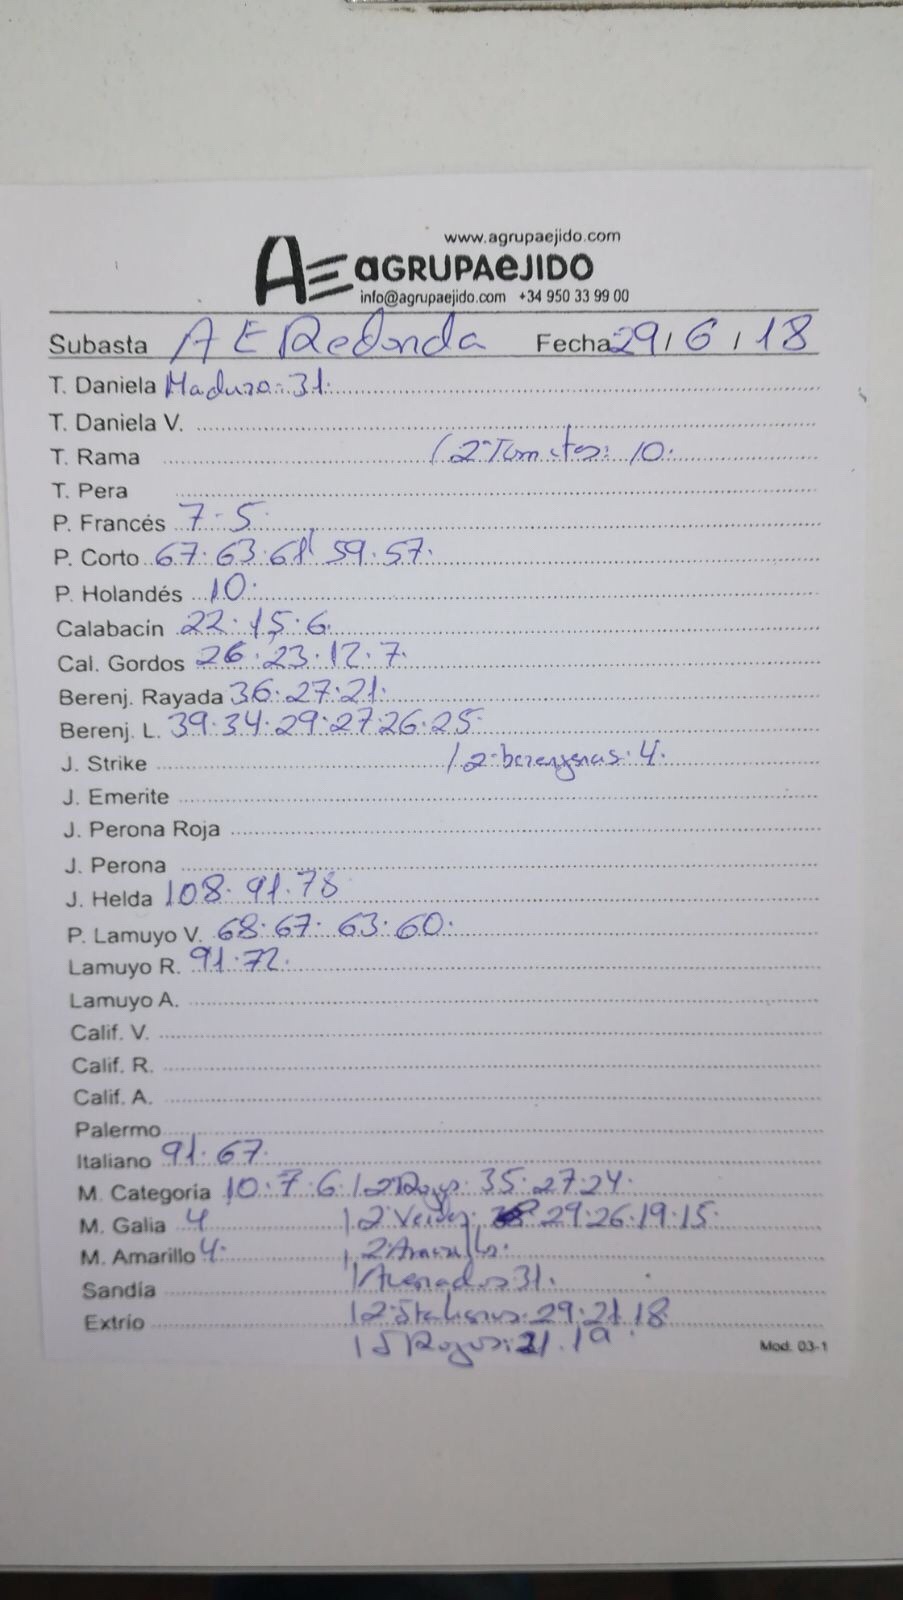 www.agrupaejido.com
AE aGRUPAeJIDO
info@agrupaejido.com +34 950 33 99 00
Subasta A E Redonda Fecha 29/6/18
T. Daniela Maduro 31.
T. Daniela V.
T. Rama / 2ª Tomates: 10.
T. Pera
P. Francés 7.5.
P. Corto 67.63.61 59.57.
P. Holandés 10.
Calabacín 22.15.6.
Cal. Gordos 26.23.12.7.
Berenj. Rayada 36.27.21.
Berenj. L. 39.34.29.27.26.25.
J. Strike / 2ª berenjenas. 4.
J. Emerite
J. Perona Roja
J. Perona
J. Helda 108.91.78
P. Lamuyo V. 68.67.63.60.
Lamuyo R. 91.72.
Lamuyo A.
Calif. V.
Calif. R.
Calif. A.
Palermo
Italiano 91.67.
M. Categoría 10.7.6. / 2ª Rojos. 35.27.24.
M. Galia 4 / 2ª Verdes. 29.26.19.15.
M. Amarillo 4. / 2ª Amarillo.
Sandía / Asenados 31.
Extrío / 2ª Italianos. 29.21.18
/ Rojos: 21.19.
Mod. 03-1